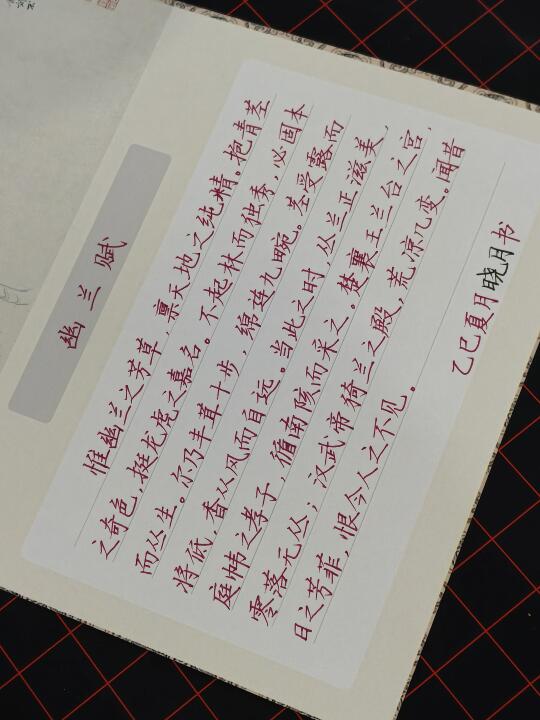 幽兰赋
惟幽兰之芳草，禀天地之纯精。抱青茎
之奇色，挺龙虎之嘉名。不起林而独秀，必固本
而丛生。尔乃丰茸十步，绵连九畹。茎受露而
将低，香从风而自远。当此之时，丛兰正滋美，
庭帏之孝子，循南陔而采之。楚襄王兰台之宫，
零落无丛；汉武帝猗兰之殿，荒凉几变。闻昔
日之芳菲，恨今人之不见。
乙巳夏月晓月书